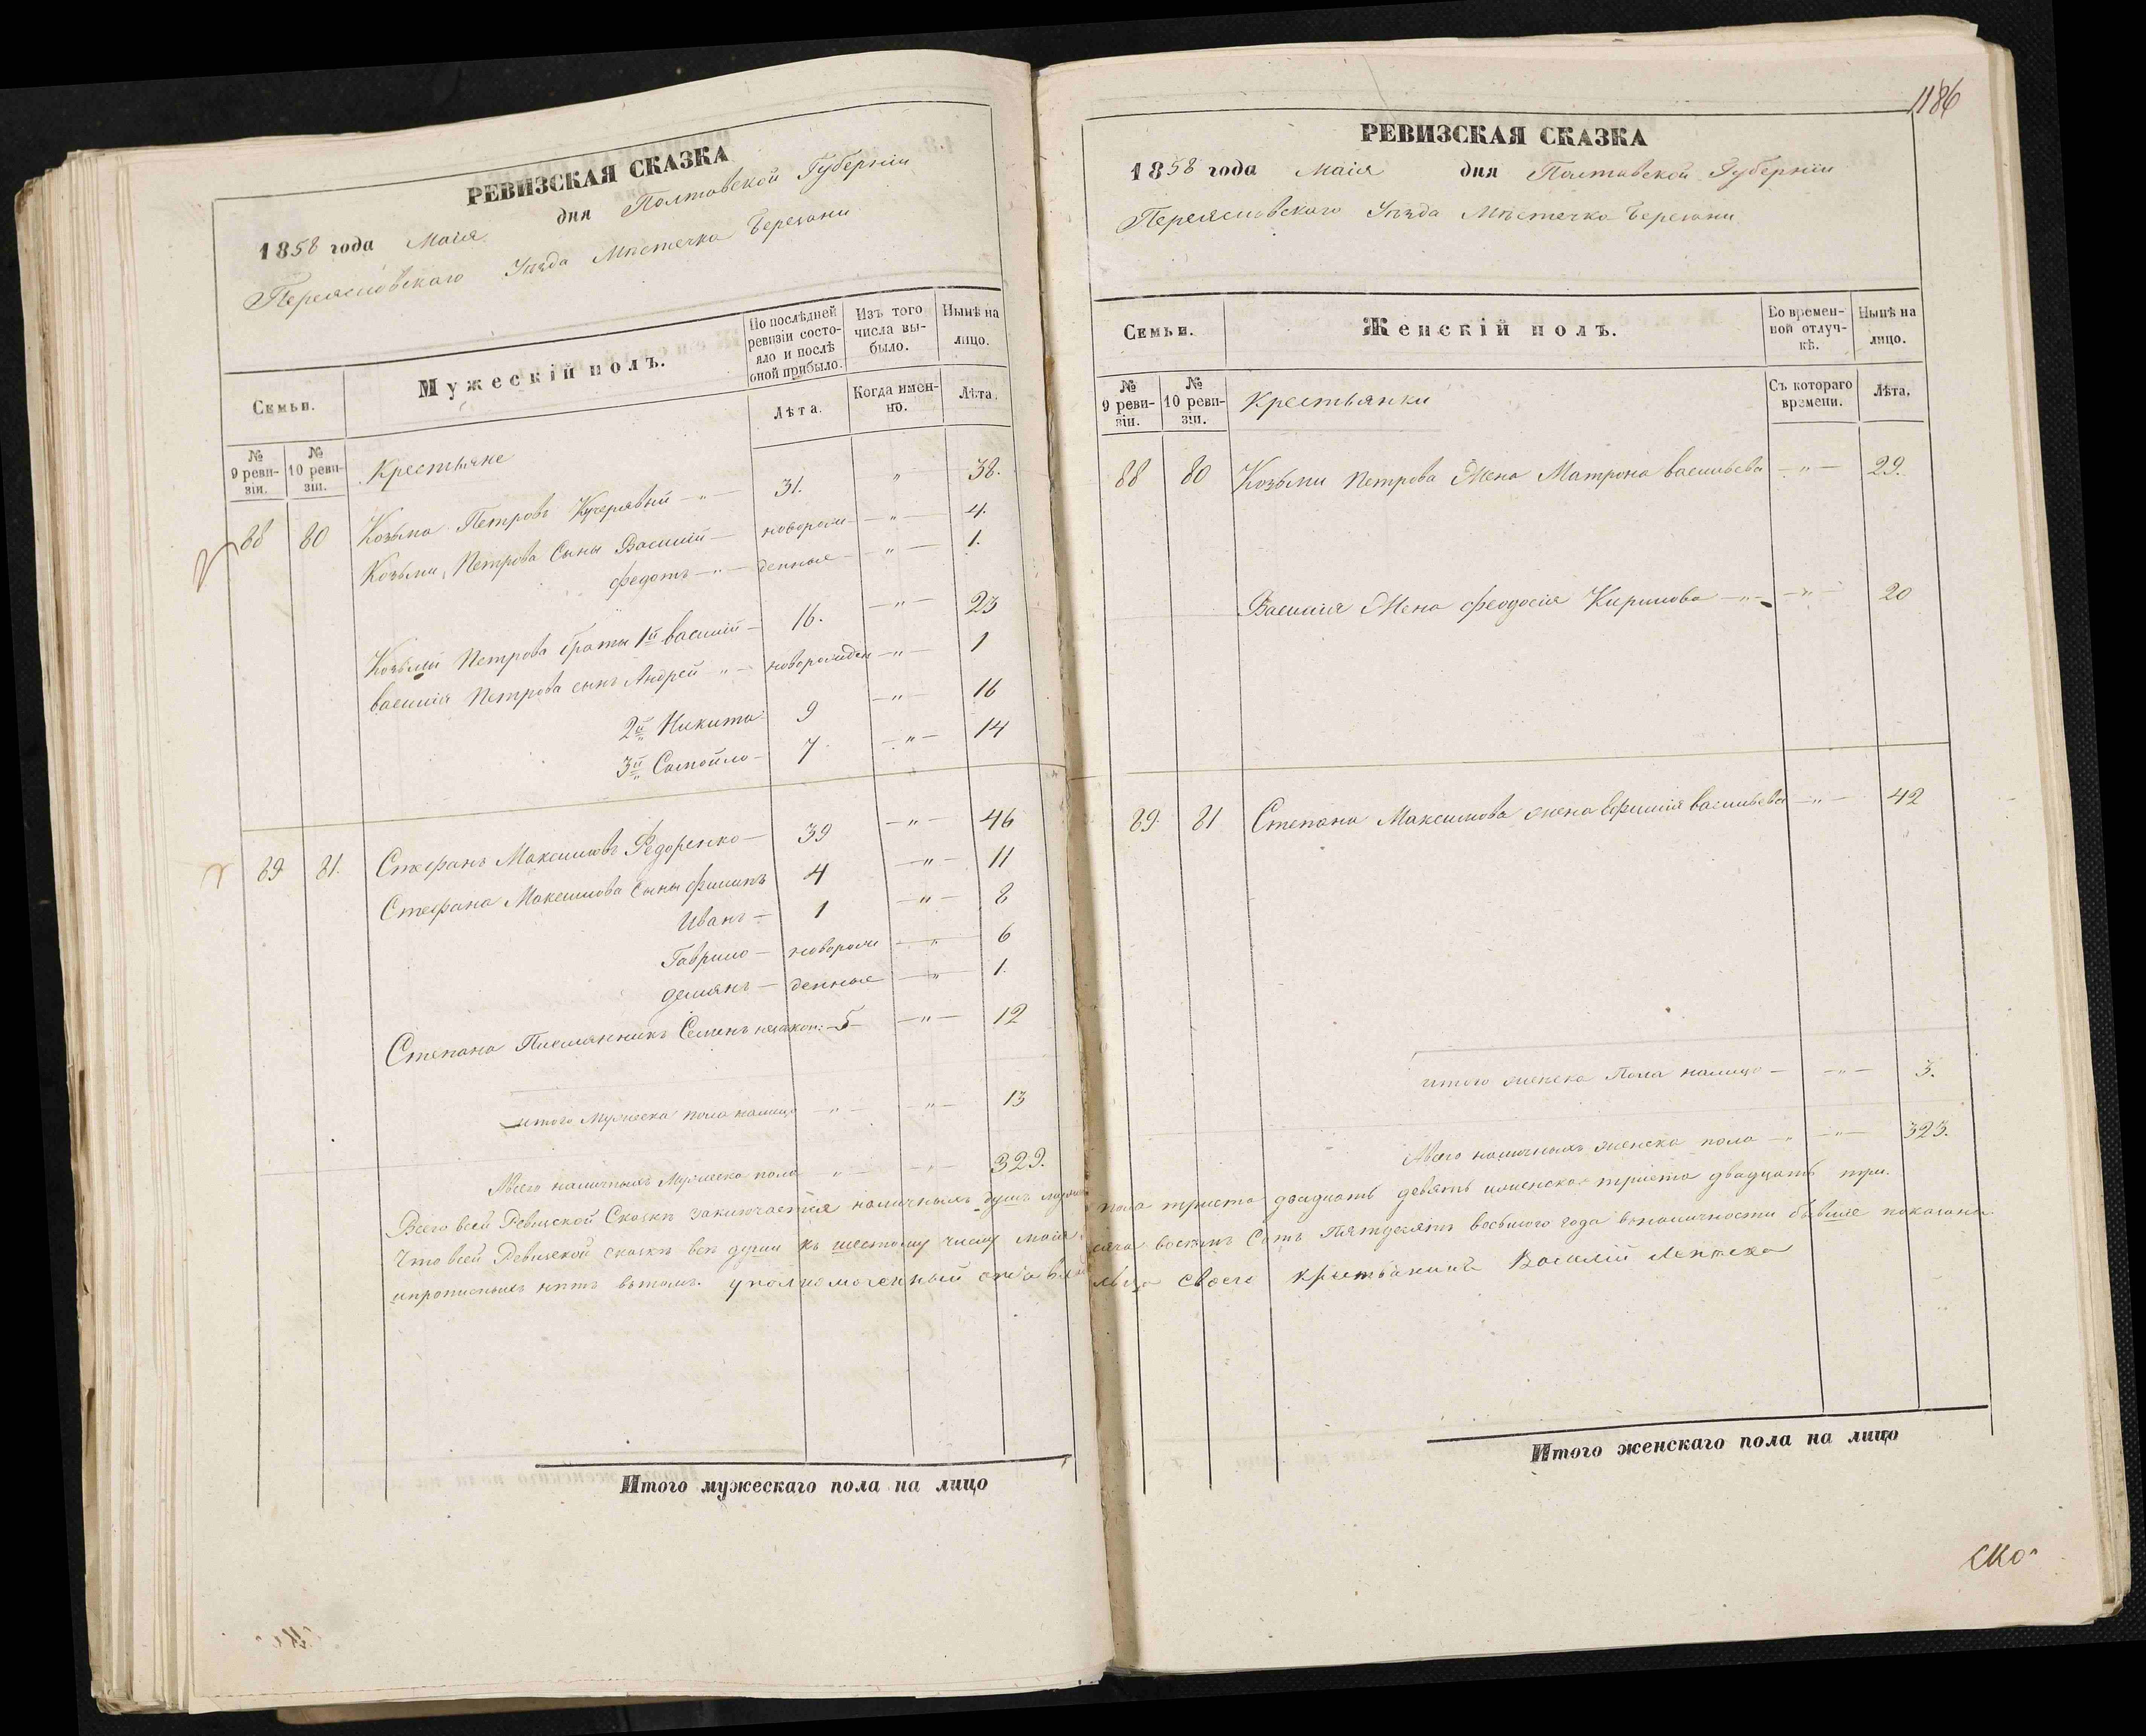 РЕВИЗСКАЯ СКАЗКА
1858 года Маія дня Полтавской Губерніи
Переясловскаго Уѣзда Мѣстечка Березани
Семьи.
Мужескій полъ.
По послѣдней ревизіи состояло и послѣ оной прибыло.
Изъ того числа выбыло.
Нынѣ на лицо.
№ 9 ревизіи.
№ 10 ревизіи.
Крестьяне
Лѣта.
Когда именно.
Лѣта.
88 80 Козьма Петровъ Кучерявий — " — 31. " 38.
Козьми Петрова Сыны Василій — новорож — " — 4.
Федотъ — " — денные — " — 1.
Козьмы Петрова браты 1й василій — 16. — " — 23
василія Петрова сынъ Андрей " — новорожден — " — 1
2й Никита 9 — " — 16
3й Самойло — 7. — " — 14
89 81. Стефанъ Максимовъ Федоренко — 39 — " — 46
Стефана Максимова сыны Филипъ 4 — " — 11
Иванъ — 1 — " — 8
Гаврило — новорож — " — 6
демянъ — денные — " — 1.
Степана Племянникъ Семенъ незакон: — 5 — " — 12
итого Мужеска пола налицо — " — " — 13
Авсего наличныхъ Мужеска пола " — " — 329.
Всего всей Ревизской Сказкѣ заключается наличныхъ душъ мужеска пола триста двадцать девять иженска триста двадцать три.
Что всей Ревизской сказкѣ всѣ души къ шестому числу маія сяча восемъ Сотъ Пятдесятъ восьмого года вналичности бывшие показани
ипрописныхъ нѣтъ вътомъ. уполномоченный отъ своего крестьянинъ Василій
Итого мужескаго пола на лицо
1186
РЕВИЗСКАЯ СКАЗКА
1858 года Маія дня Полтавской Губерніи
Переясловскаго Уѣзда Мѣстечка Березани
Семьи.
Женскій полъ.
Во временной отлучкѣ.
Нынѣ на лицо.
№ 9 ревизіи.
№ 10 ревизіи.
Крестьянки
Съ котораго времени.
Лѣта.
88 80 Козьми Петрова Жена Матрона васильева — " — 29.
Василія Жена Феодосія Кирилова — " — — " — 20
89. 81 Степана Максимова жена Ефимія васильева — " — 42
итого женска Пола налицо — — " — 3.
Авсего наличныхъ женска пола — " — " — 323.
Итого женскаго пола на лицо